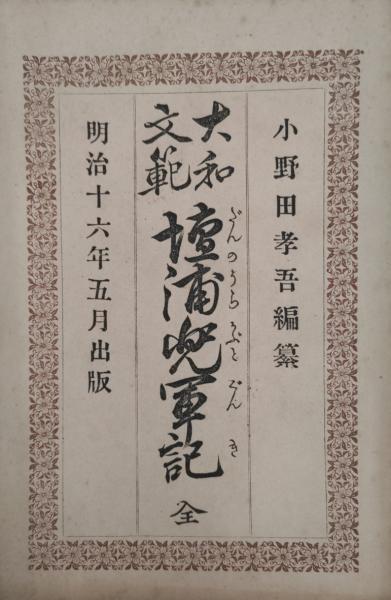 小野田孝吾編纂
大和文範
壇浦兜軍記 全
だんのうらかぶとぐんき
明治十六年五月出版